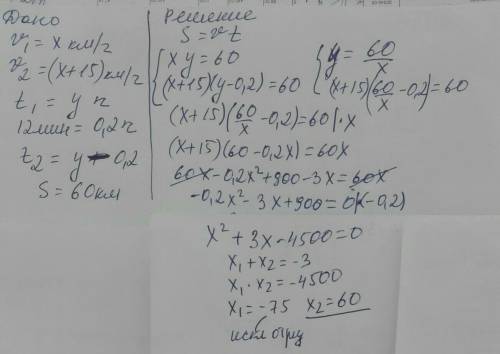 Дано
v₁ = x км/ч
v₂ = (x+15) км/ч
t₁ = y ч
12 мин = 0,2 ч
t₂ = y - 0,2
S = 60 км
Решение
S = vt
{ xy = 60
(x+15)(y-0,2) = 60
{ y = 60/x
(x+15)(60/x - 0,2) = 60
(x+15)(60/x - 0,2) = 60 | · x
(x+15)(60 - 0,2x) = 60x
60x - 0,2x² + 900 - 3x = 60x
-0,2x² - 3x + 900 = 0 (÷(-0,2)
x² + 3x - 4500 = 0
x₁ + x₂ = -3
x₁ · x₂ = -4500
x₁ = -75 x₂ = 60